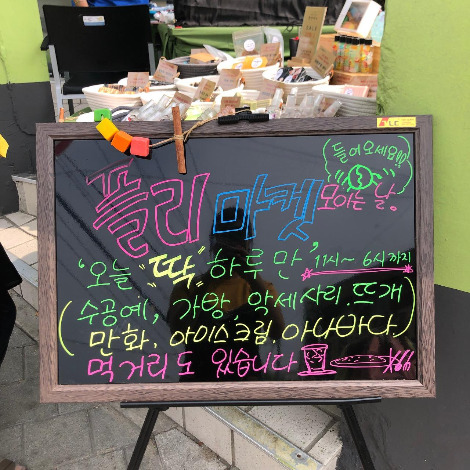 들어오세요!!
플리마켓
모이는 날.
'오늘 "딱" 하루만'
11시~6시까지
(수공예, 가방, 악세사리. 뜨개
만화. 아이스크림. 아나바다.)
먹거리도 있습니다